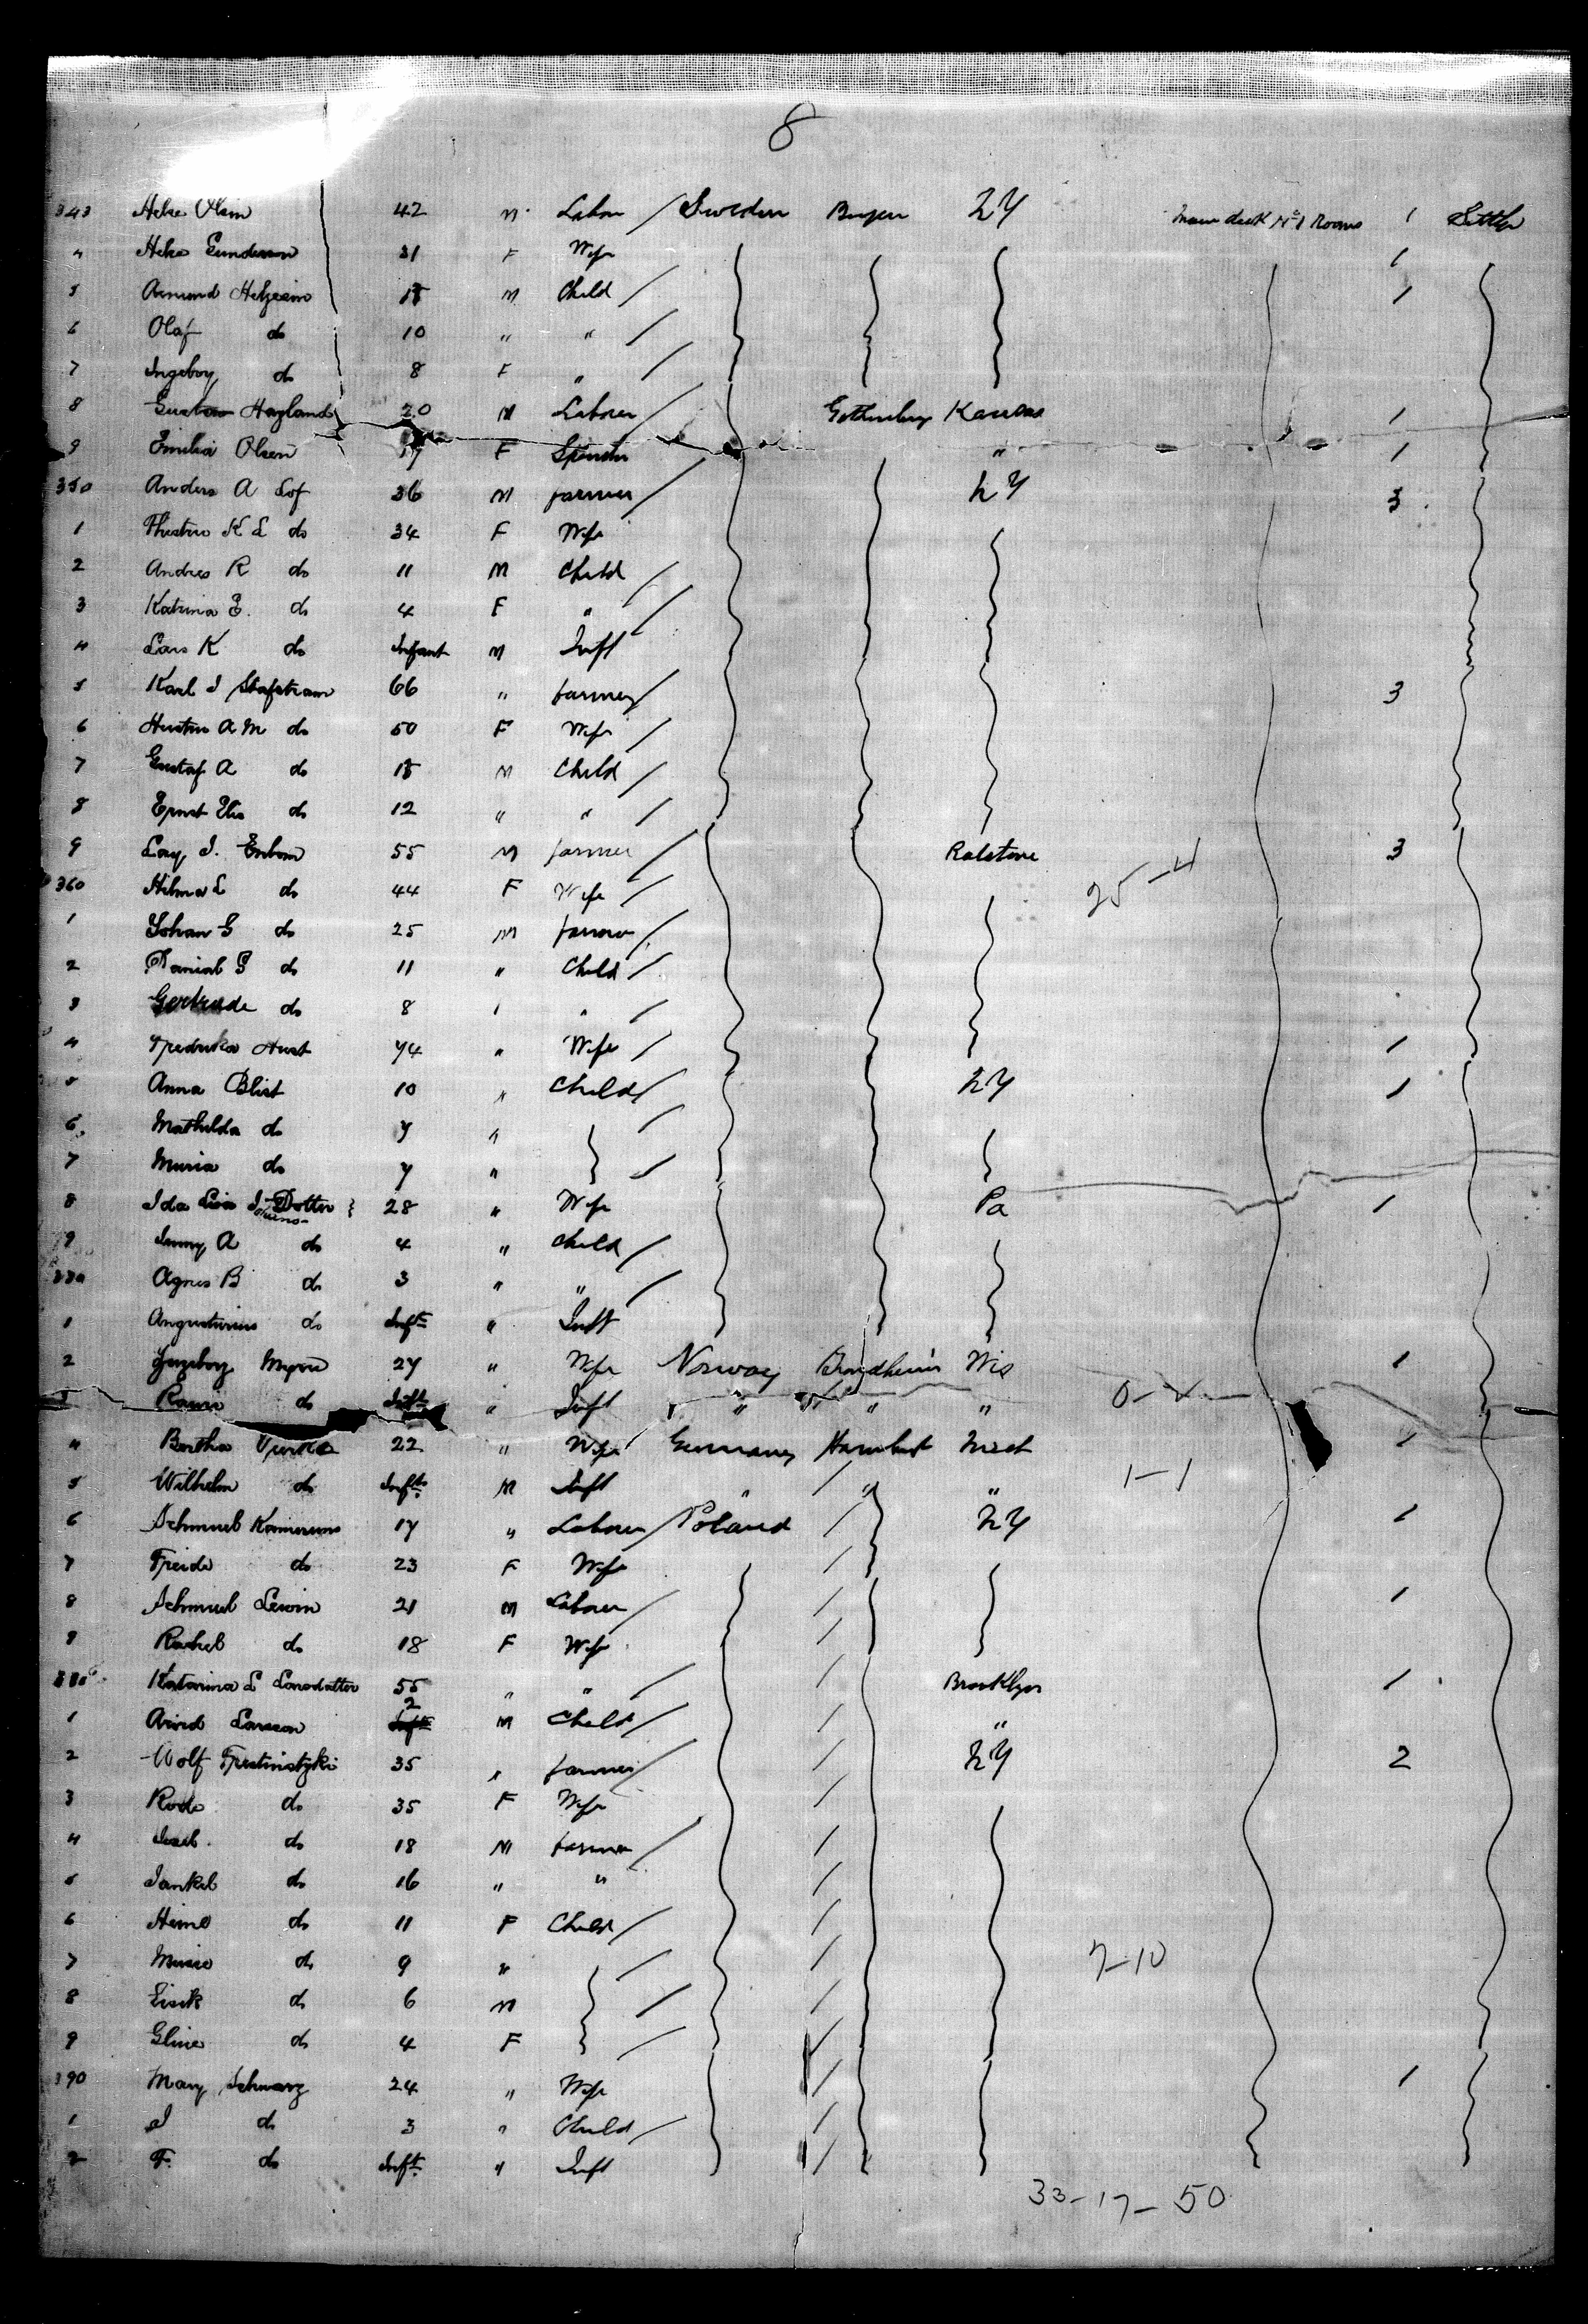 8
343 Olsen 42 M Labor / Sweden Bergen NY Main deck No 1 Rooms 1 Settler
4 Gunderson 31 F Wife 1
5 Amund Helgesen 13 M Child / 1
6 Olaf do 10 " " /
7 Ingeborg do 8 F " /
8 Gustav Hagland 20 M Laborer Gothenburg Kansas 1
9 Emilia Olsen 17 F Spinster " 1
350 Anders A Lof 36 M farmer / NY 3
1 K L do 34 F Wife
2 Andres R do 11 M Child /
3 Katrina E. do 4 F " /
4 Lars K do Infant M Inft
5 Karl J Stafstrom 66 " farmer / 3
6 A M do 50 F Wife /
7 Gustaf A do 13 M Child /
8 Ernst Elis do 12 " " /
9 J. Enbom 55 M farmer / Ralstone 3
25-4
360 Hilma L do 44 F Wife /
1 Johan G do 25 M farmer /
2 Danial G do 11 " Child /
3 Gertrude do 8 " " /
4 Fredrika Hurt 44 " Wife / 1
5 Anna Blixt 10 " Child / NY 1
6 Mathilda do 7 " /
7 Maria do 7 " /
8 Ida Lisa J Dotter 28 " Wife Pa 1
9 Jenny A do 4 " Child /
370 Agnes B do 3 " " /
1 do Inft " Inft
2 Ingeborg 27 " Wife Norway Trondheim Wis 1
3 do Inft " Inft " " " 0-2
4 Bertha 22 " Wife Germany Hamburg Mich 1
5 Wilhelm do Inft M Inft " / " " 1-1
6 Schmuel 17 " Laborer / Poland / NY 1
7 Freida do 23 F Wife /
8 Schmuel Lewin 21 M Laborer / / 1
9 Rachel do 18 F Wife /
380 Katarina L Larsdatter 55 " " / / Brooklyn 1
1 Arvid Larsson 2 M Child / / "
2 Wolf 35 " farmer / / NY 2
3 Rode do 35 F Wife /
4 do 18 M farmer / /
5 Jankel do 16 " " /
6 do 11 F Child / /
7 do 9 " / / 7-10
8 Eisik do 6 M / /
9 Gline do 4 F / /
390 Mary Schwarz 24 " Wife / 1
1 J do 3 " Child / /
2 F. do Inft " Inft /
33-17-50